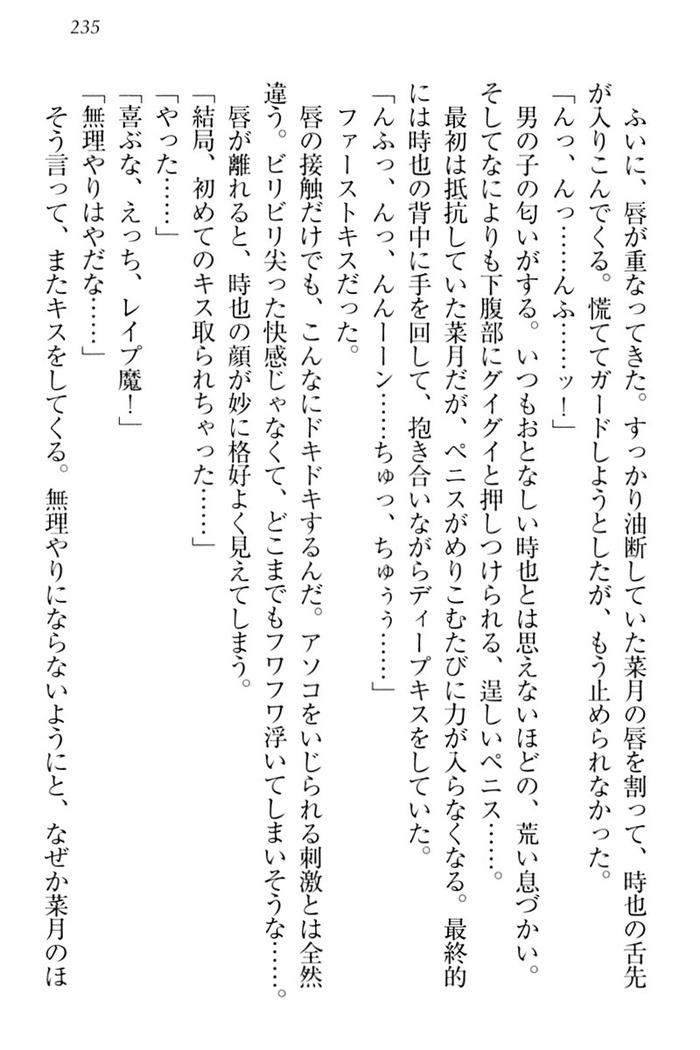 235
ふいに、唇が重なってきた。すっかり油断していた菜月の唇を割って、時也の舌先
が入りこんでくる。慌ててガードしようとしたが、もう止められなかった。
「んっ、んっ……んふ……ッ！」
男の子の匂いがする。いつもおとなしい時也とは思えないほどの、荒い息づかい。
そしてなによりも下腹部にグイグイと押しつけられる、逞しいペニス……。
最初は抵抗していた菜月だが、ペニスがめりこむたびに力が入らなくなる。最終的
には時也の背中に手を回して、抱き合いながらディープキスをしていた。
「んふっ、んっ、んんーーン……ちゅっ、ちゅぅぅ……」
ファーストキスだった。
唇の接触だけでも、こんなにドキドキするんだ。アソコをいじられる刺激とは全然
違う。ビリビリ尖った快感じゃなくて、どこまでもフワフワ浮いてしまいそうな……。
唇が離れると、時也の顔が妙に格好よく見えてしまう。
「結局、初めてのキス取られちゃった……」
「やった……」
「喜ぶな、えっち、レイプ魔！」
「無理やりはやだな……」
そう言って、またキスをしてくる。無理やりにならないようにと、なぜか菜月のほ